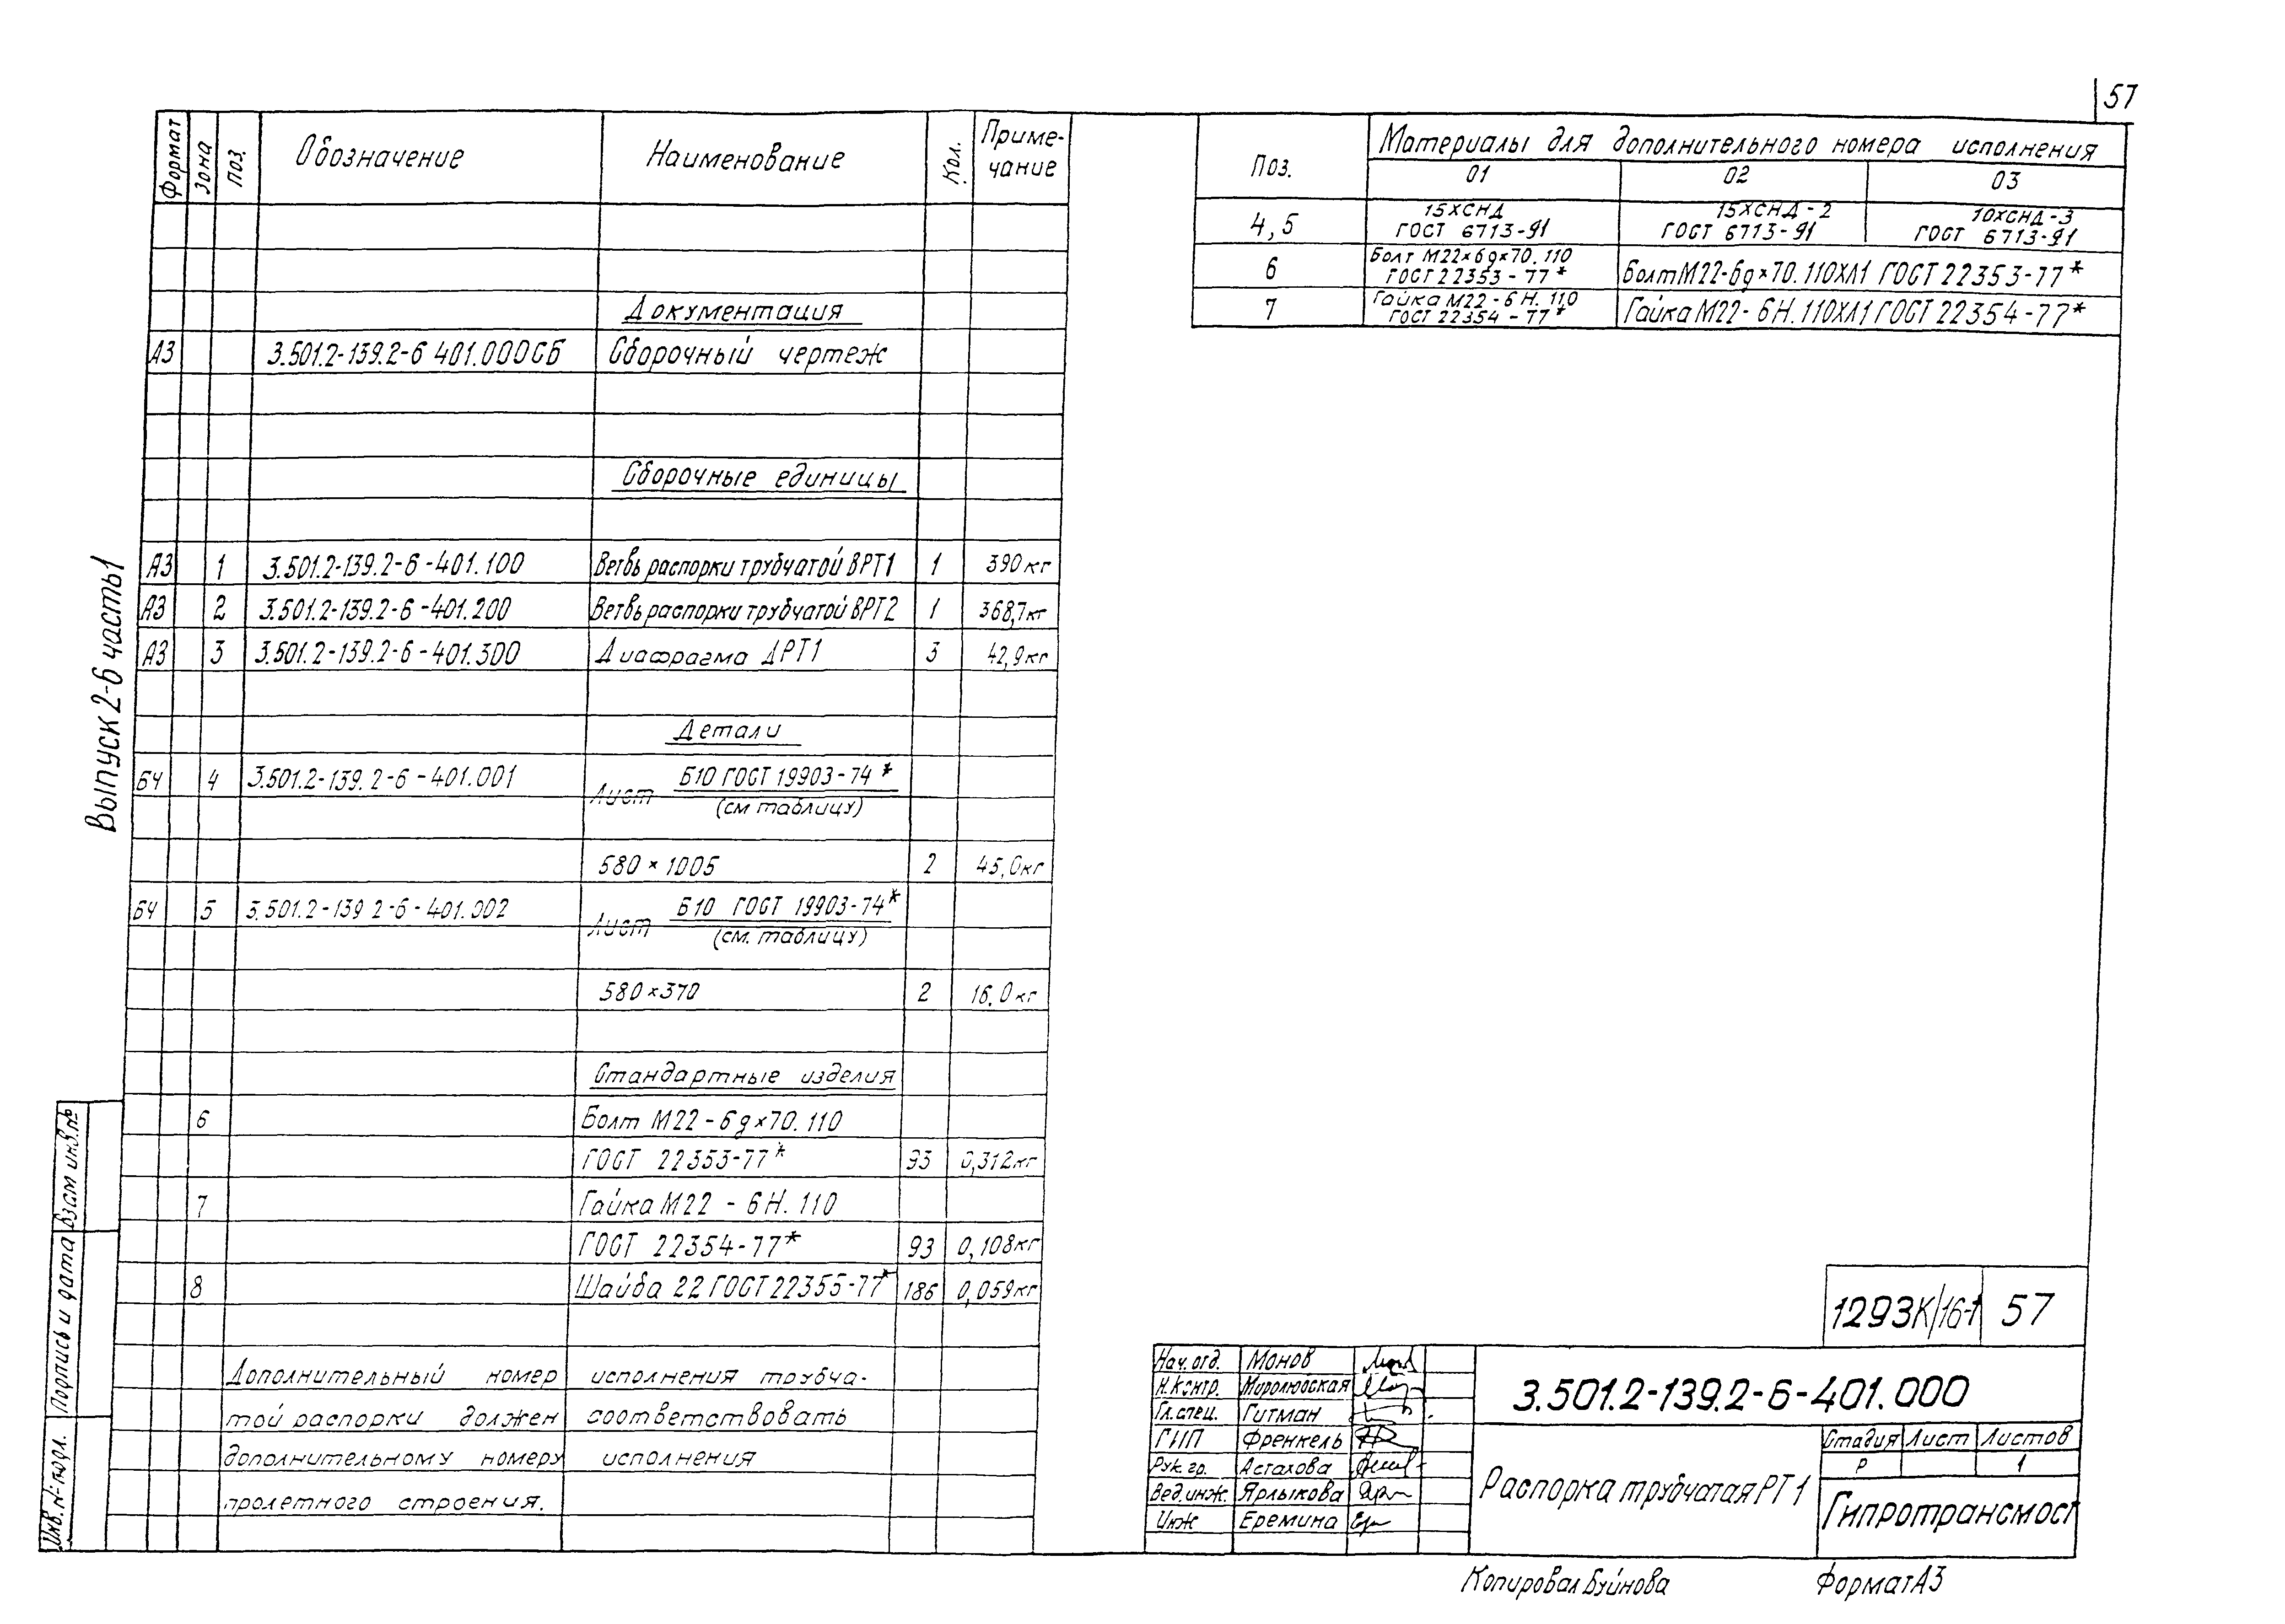 57
Формат Зона Поз. Обозначение Наименование Кол. Приме-
чание
Документация
А3 3.501.2-139.2-6 401.000СБ Сборочный чертеж
Сборочные единицы
А3 1 3.501.2-139.2-6-401.100 Ветвь распорки трубчатой ВРТ1 1 390кг
А3 2 3.501.2-139.2-6-401.200 Ветвь распорки трубчатой ВРТ2 1 368,7кг
А3 3 3.501.2-139.2-6-401.300 Диафрагма ДРТ1 3 42,9кг
Детали
БЧ 4 3.501.2-139.2-6-401.001 Лист Б10 ГОСТ 19903-74*
(см таблицу)
580×1005 2 45,0кг
БЧ 5 3.501.2-139 2-6-401.002 Лист Б10 ГОСТ 19903-74*
(см. таблицу)
580×370 2 16.0кг
Стандартные изделия
6 Болт М22-6g×70.110
ГОСТ 22353-77* 93 0,312кг
7 Гайка М22-6Н.110
ГОСТ 22354-77* 93 0,108кг
8 Шайба 22 ГОСТ 22355-77* 186 0,059кг
Дополнительный номер исполнения трубча-
той распорки должен соответствовать
дополнительному номеру исполнения
пролетного строения.
Выпуск 2-6 часть 1
Взам инв.№
Подпись и дата
Инв.№ подл.
Поз. Материалы для дополнительного номера исполнения
01 02 03
4,5 15ХСНД
ГОСТ 6713-91 15ХСНД-2
ГОСТ 6713-91 10ХСНД-3
ГОСТ 6713-91
6 Болт М22×6g×70.110
ГОСТ 22353-77* Болт М22-6g×70.110ХЛ1 ГОСТ 22353-77*
7 Гайка М22-6Н.110
ГОСТ 22354-77* Гайка М22-6Н.110ХЛ1 ГОСТ 22354-77*
1293К/16-1 57
Нач.отд. Монов
Н.контр. Миролюбская
Гл.спец. Гитман
ГИП Френкель
Рук.гр. Астахова
Вед.инж. Ярлыкова
Инж Еремина
3.501.2-139.2-6-401.000
Распорка трубчатая РТ1
Стадия Лист Листов
Р 1
Гипротрансмост
Копировал Буйнова
Формат А3